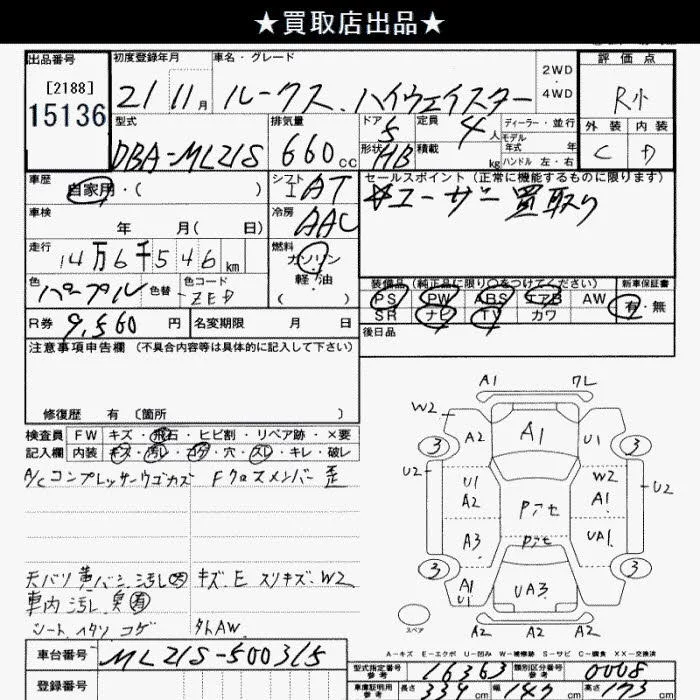 ★買取店出品★
出品番号 初度登録年月 車名・グレード 評価点
[2188] 15136 21 11月 ルークス.ハイウェイスター 2WD・4WD R小
外装 内装
C D
型式 排気量 ドア 定員 ディーラー・並行
DBA-ML21S 660cc 5 4人 モデル年式 年
形状 HB 積載 kg ハンドル 左・右
車歴 シフト セールスポイント(正常に機能するものに限ります)
自家用・( ) IAT ユーザー買取り
車検 冷房
年 月( 日) AAC
走行 燃料
14万6千546km ガソリン
軽油
( )
色 色替 色コード 装備品(純正品に限り○をつけてください) 新車保証書
パープル ZED PS PW ABS エアB AW 有・無
SR ナビ TV カワ
R券 9,560円 名変期限 月 日 後日品
注意事項申告欄(不具合内容等は具体的に記入して下さい)
修復歴 有〔箇所 〕
検査員 FW キズ・飛石・ヒビ割・リペア跡・×要
記入欄 内装 キズ・汚レ・コゲ・穴・スレ・キレ・破レ
A/Cコンプレッサーウゴカズ Fクロスメンバー歪
天バリ黄バミ.汚レ キズ.E スリキズ.W2
車内汚レ.臭有
シート.ヘタリコゲ 外AW.
A1 7L
W2 A2 A1 U1
3 3
U2 U1 A2 Pアセ W2 A1 U2
A3 Pアセ UA1
3 3
A1 U1 UA3
スペア A2 A2 A2
A-キズ E-エクボ U-凹み W-補修跡 S-サビ C-腐食 XX-交換済
車台番号 ML21S-500315
登録番号
型式指定番号 参考 16363 類別区分番号 参考 0008
車庫証明用 参考 長さ 339cm 幅 147cm 高さ 173cm